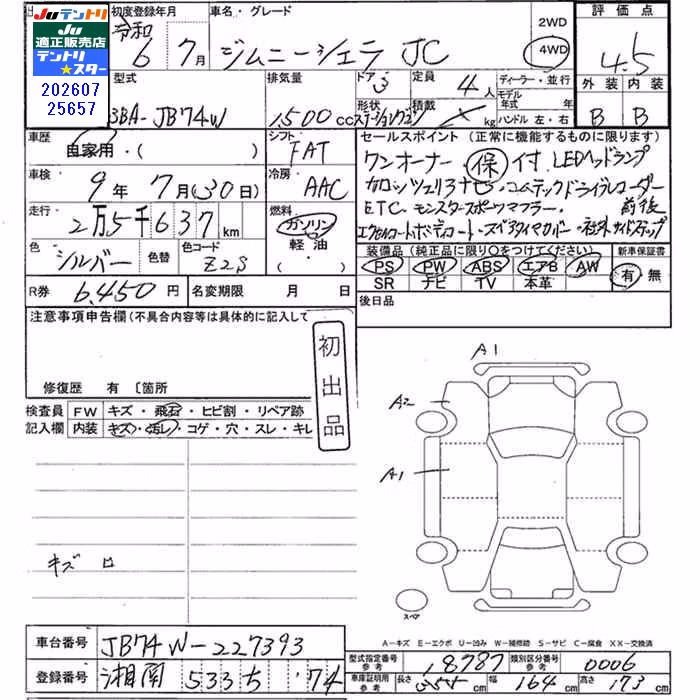 Juテントリ
Ju
適正販売店
テントリ
★スター
202607
25657
初度登録年月
令和
6年 7月
車名・グレード
ジムニーシエラ JC
2WD
4WD
評価点
4.5
外装 内装
B B
型式
3BA-JB74W
排気量
1,500cc
ドア 3
形状
ステーションワゴン
定員 4人
積載 kg
ディーラー・並行
モデル年式 年
ハンドル 左・右
車歴
自家用・( )
シフト
FAT
車検
9年 7月(30日)
冷房
AAC
走行
2万5千637km
燃料
ガソリン
軽油
( ・ )
色
シルバー
色替
色コード
Z2S
R券 6,450円
名変期限 月 日
セールスポイント(正常に機能するものに限ります)
ワンオーナー 保付 LEDヘッドランプ
カロッツェリアナビ・コムテックドライブレコーダー
ETC モンスタースポーツマフラー 前後
ボディコート・スペアタイヤカバー・社外サイドステップ
装備品(純正品に限り○をつけてください)
PS PW ABS エアB AW
SR ナビ TV 本革
新車保証書
有 無
後日品
注意事項申告欄(不具合内容等は具体的に記入して
初出品
修復歴 有 〔箇所
検査員 FW キズ・飛石・ヒビ割・リペア跡
記入欄 内装 キズ・汚レ・コゲ・穴・スレ・キレ
キズ ロ
A1
A2
A1
スペア
A-キズ E-エクボ U-凹み W-補修跡 S-サビ C-腐食 XX-交換済
車台番号 JB74W-227393
登録番号 湘南 533 ち 74
型式指定番号 参考 18787
類別区分番号 参考 0006
車庫証明用 参考 長さ 355cm 幅 164cm 高さ 173cm